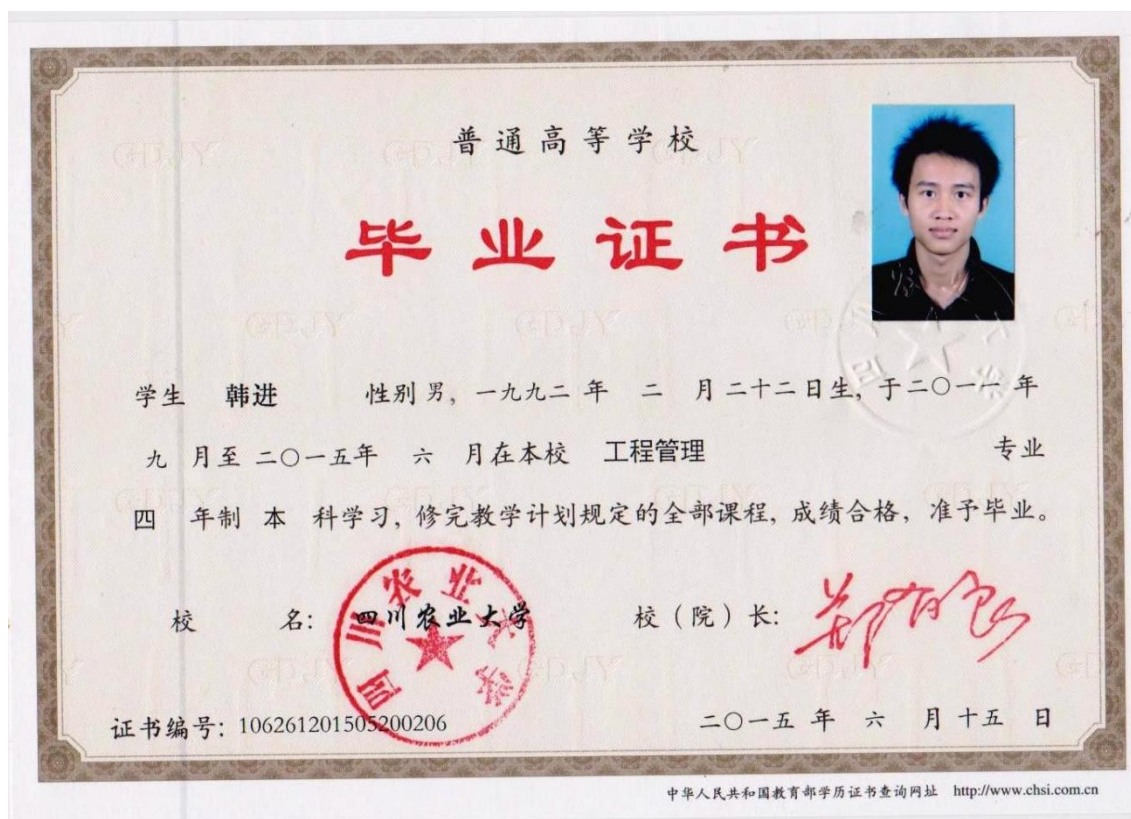 普通高等学校
毕业证书
学生 韩进 性别 男，一九九二 年 二 月 二十二 日生，于二〇一一 年
九 月至 二〇一五年 六 月在本校 工程管理 专业
四 年制 本 科学习，修完教学计划规定的全部课程，成绩合格，准予毕业。
四川农业大学
校 名： 四川农业大学 校（院）长： 郑有良
证书编号：106261201505200206 二〇一五 年 六 月 十五 日
中华人民共和国教育部学历证书查询网址 http://www.chsi.com.cn
GDJY